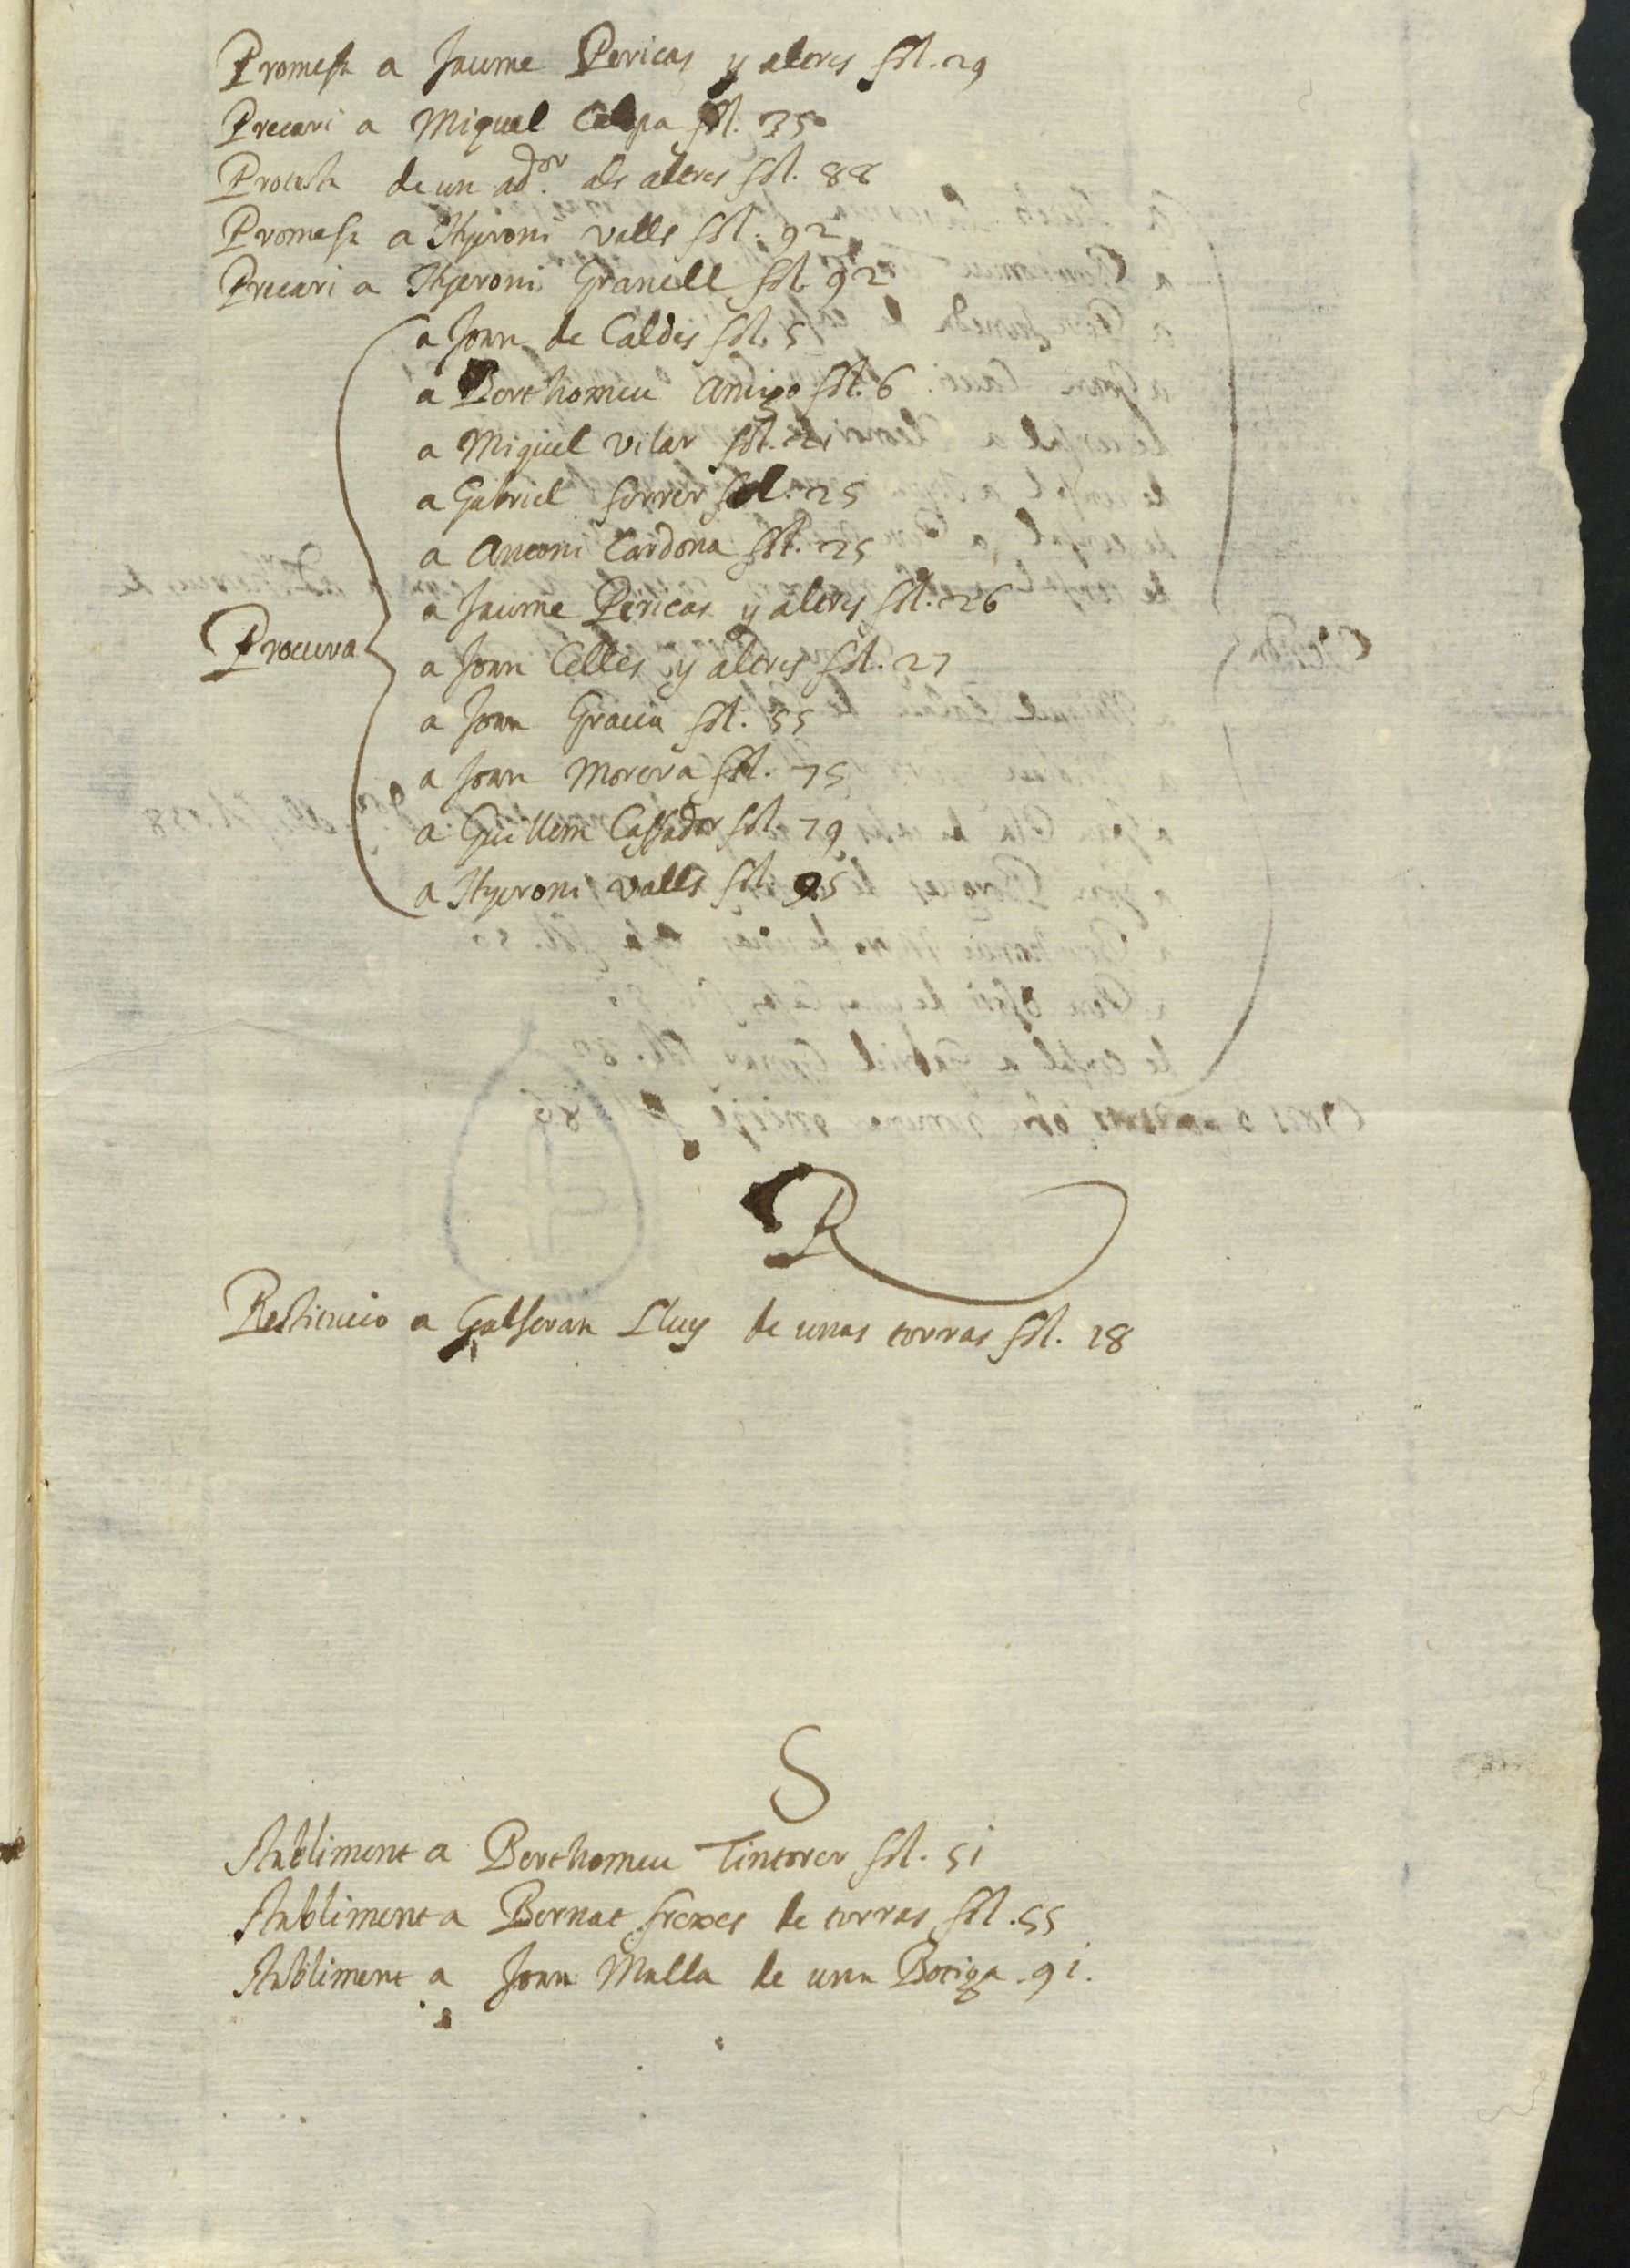 Promesa a Jaume Pericas y altres fol. 29
Precari a Miquel Calpa fol. 35
Protesta de un ad.or als altres fol. 88
Promesa a Hyeroni valls fol. 92
Precari a Hyeroni Granell fol. 92
a Joan de Caldes fol. 5
a Berthomeu Amigo fol. 6
a Miquel vilar fol.
a Gabriel ferrer fol. 25
a Antoni Cardona fol. 25
a Jaume Pericas y altres fol. 26
Procura
a Joan Celles y altres fol. 27
a Joan Gracia fol. 55
a Joan Morera fol. 75
a Guillem Cassador fol. 79
a Hyeroni valls fol. 95
R
Restitucio a Galseran Lluy de unas terras fol. 18
S
Stabliment a Berthomeu Tintorer fol. 51
Stabliment a Bernat frexes de terras fol. 55
Stabliment a Joan Malla de una Botiga. 91.